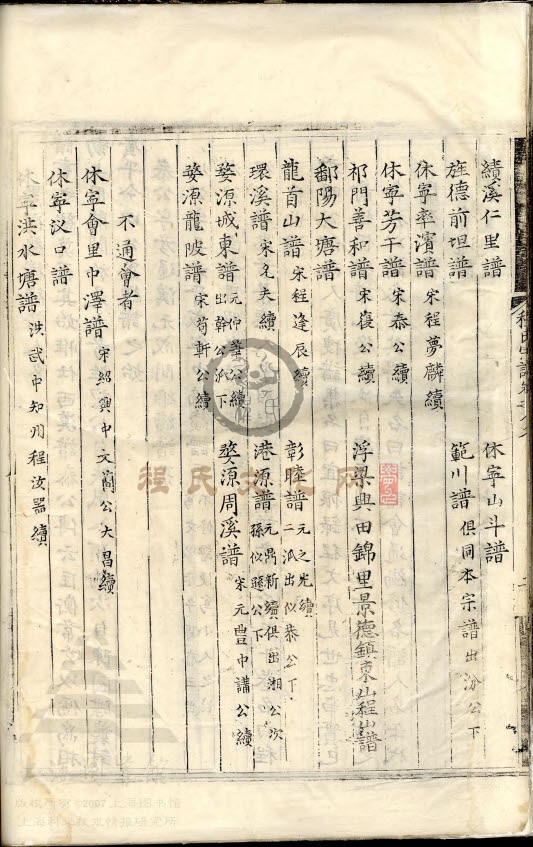 績溪仁里譜 休寧山斗譜
旌德前坦譜 範川譜 俱同本宗譜出汾公下
休寧率濱譜 宋程夢麟續
休寧芳干譜 宋泰公續
祁門善和譜 宋復公續 浮梁興田錦里景德鎮東山程山譜
鄱陽大塘譜
龍首山譜 宋程逢辰續 彰睦譜 元之光續 二派出似恭公下
環溪譜 宋名夫續 港源譜 元鼎新續俱出湘公次孫似遜公下
婺源城東譜 元仲華公續 出幹公派下 婺源周溪譜 宋元豊中講公續
婺源龍陂譜 宋荀軒公續
不通會者
休寧會里中澤譜 宋紹興中文蕳公大昌續
休寧汊口譜
休寧洪水塘譜 洪武中知州程汝器續
版權所有©2007上海圖書館
上海科學技術情報研究所